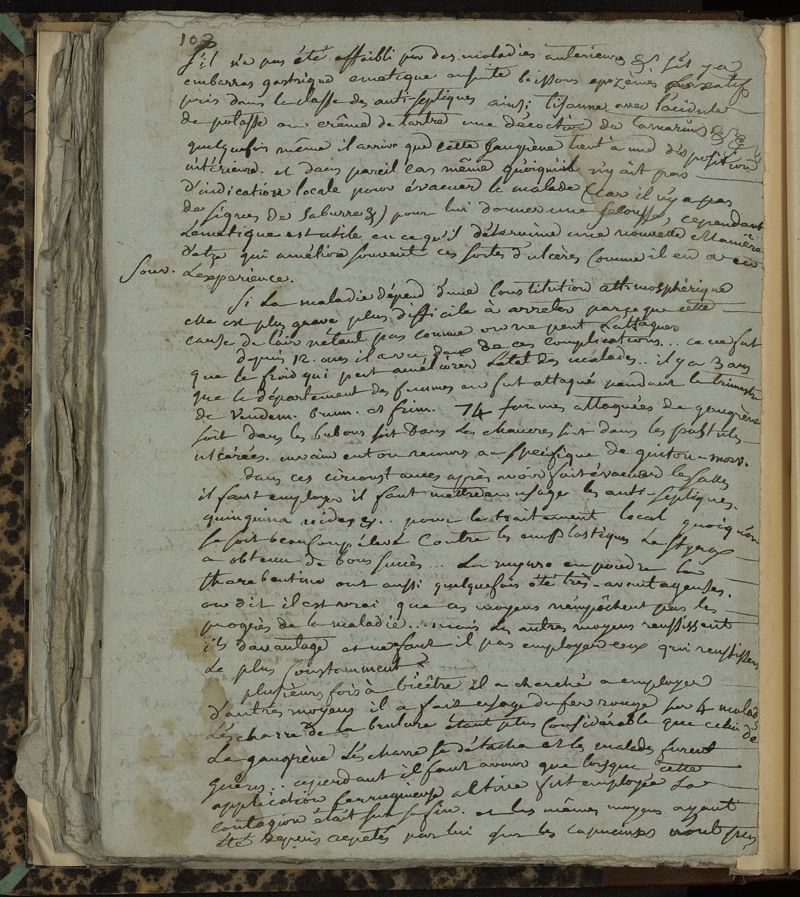 103
s'il n'a pas été affaibli par des maladies anterieures &. s'il y a
embarras gastrique emetique ensuite boissons apozèmes
pris dans la classe des anti-septiques ainsi tisanne avec l'acidule
de potasse ou crême de tartre une décoction de tamarins &. &.
quelquefois même il arrive que cette gangrène tient à une disposition
intérieure. et dans pareil cas même quoiqu'il n'y ait pas
d'indication locale pour évacuer le malade (car il n'y a pas
de signes de saburre &) pour lui donner une cependant
l'emetique est utile en ce qu'il détermine une nouvelle manière
d'etre qui améliore souvent ces sortes d'ulcères comme il en a eu
souv. l'experience.
Si la maladie dépend d'une constitution athmosphérique
elle est plus grave plus difficile à arreter parceque cette
cause de l'air n'étant pas connue on ne peut l'attaquer
depuis 12. ans il a vu deux de ces complications... ce ne fut
que le froid qui put améliorer l'état des malades.. il y a 3 ans
que le département des femmes en fut attaqué pendant le trimestre
de Vendem. brum. et frim. 74 femmes attaquées de gangrène
soit dans les bubons soit dans les chancres soit dans les pustules
ulcérées. en vain eut on recours au spécifique de guiton-morv.
dans ces circonstances après avoir fait évacuer les salles
il faut employer il faut mettre en usage les anti-septiques.
quinquina acides &.. pour le traitement local quoiqu'on
se soit beaucoup élevé contre les emplastiques le styrax
a obtenu de bons succès... la myrrhe en poudre la
tharebentine ont aussi quelquefois été très-avantageuses.
on dit il est vrai que ces moyens n'empêchent pas les
progrès de la maladie... mais les autres moyens reussissent
ils davantage et ne faut il pas employer ceux qui reussissent
le plus constamment?
plusieurs fois à bicêtre il a cherché a employer
d'autres moyens il a fait usage du fer rouge sur 4 malad
l'escharre de la brulure étant plus considérable que celui de
la gangrène l'escharre se détacha et les malades furent
gueris.. cependant il faut avouer que lorsque cette
application fut employée la
contagion était sur sa fin. et les mêmes moyens ayant
été depuis repetés par lui que les capucins n'ont pas